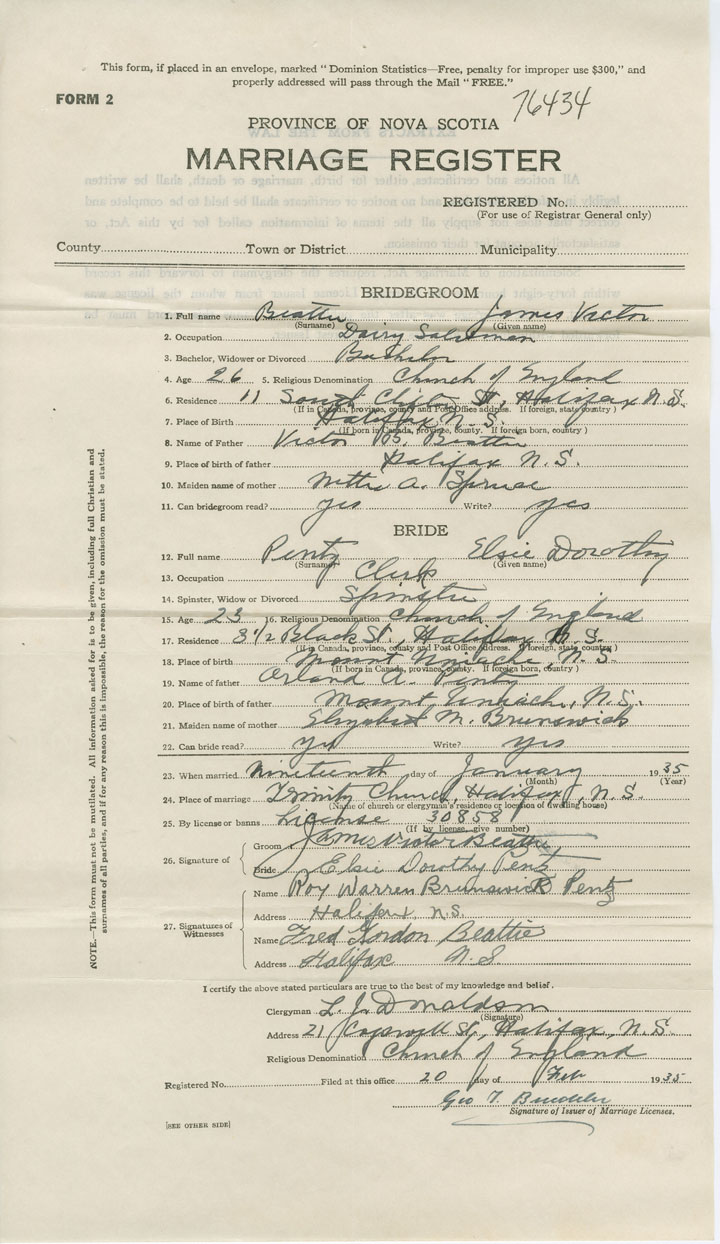 This form, if placed in an envelope, marked "Dominion Statistics—Free, penalty for improper use $300," and
properly addressed will pass through the Mail "FREE."
FORM 2
76434
PROVINCE OF NOVA SCOTIA
MARRIAGE REGISTER
REGISTERED No.
(For use of Registrar General only)
County Town or District Municipality
BRIDEGROOM
1. Full name Beattie James Victor
(Surname) (Given name)
2. Occupation Dairy Salesman
3. Bachelor, Widower or Divorced Bachelor
4. Age 26 5. Religious Denomination Church of England
6. Residence 11 South Clifton St, Halifax N.S.
(If in Canada, province, county and Post Office address. If foreign, state country)
7. Place of Birth Halifax N.S.
(If born in Canada, province, county. If foreign born, country)
8. Name of Father Victor Beattie
9. Place of birth of father Halifax N.S.
10. Maiden name of mother A.
11. Can bridegroom read? yes Write? yes
BRIDE
12. Full name Pentz Elsie Dorothy
(Surname) (Given name)
13. Occupation Clerk
14. Spinster, Widow or Divorced Spinster
15. Age 23 16. Religious Denomination Church of England
17. Residence 3½ Black St., Halifax N.S.
(If in Canada, province, county and Post Office address. If foreign, state country)
18. Place of birth Mount Uniacke, N.S.
(If born in Canada, province, county. If foreign born, country)
19. Name of father Orland A. Pentz
20. Place of birth of father Mount Uniacke, N.S.
21. Maiden name of mother Elizabeth M. Brunswick
22. Can bride read? yes Write? yes
23. When married Nineteenth day of January 1935
(Month) (Year)
24. Place of marriage Trinity Church, Halifax, N.S.
(Name of church or clergyman's residence or location of dwelling house)
25. By license or banns License 30858
(If by license, give number)
26. Signature of
Groom James Victor Beattie
Bride Elsie Dorothy Pentz
27. Signatures of Witnesses
Name Roy Warren Brunswick Pentz
Address Halifax, N.S.
Name Fred Gordon Beattie
Address Halifax N.S.
I certify the above stated particulars are true to the best of my knowledge and belief.
Clergyman L. J. Donaldson
(Signature)
Address 21 Cogswell St., Halifax, N.S.
Religious Denomination Church of England
Registered No. Filed at this office 20 day of Feb 1935
Geo T.
Signature of Issuer of Marriage Licenses.
[SEE OTHER SIDE]
NOTE.—This form must not be mutilated. All information asked for is to be given, including full Christian and
surnames of all parties, and if for any reason this is impossible, the reason for the omission must be stated.